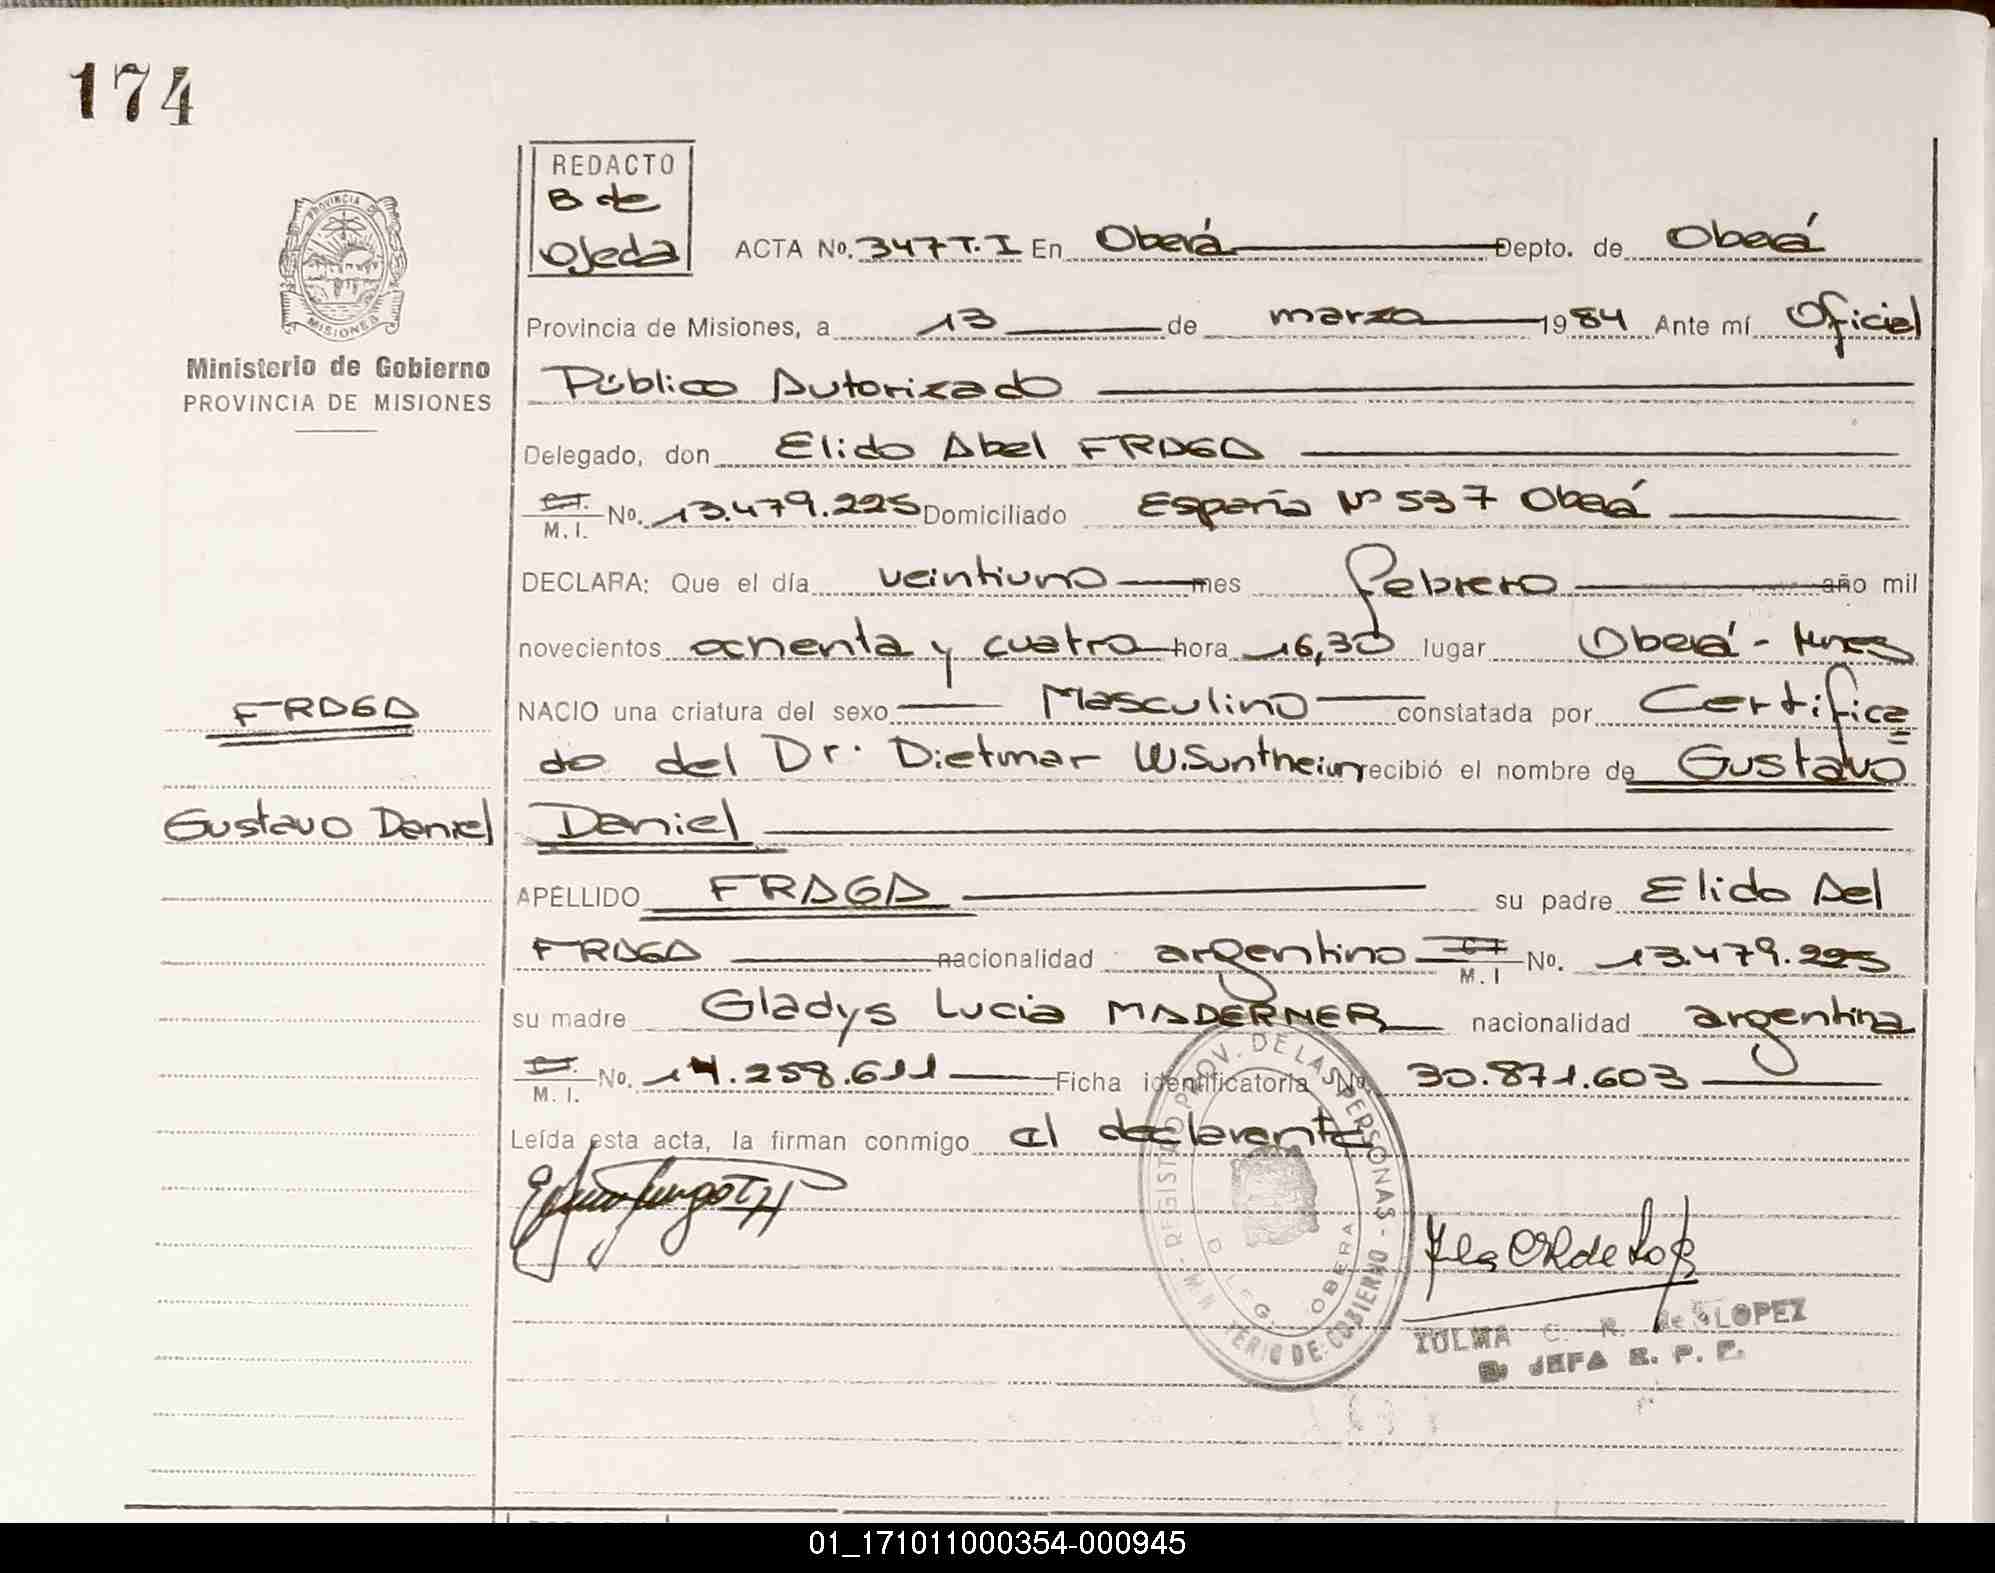 174
REDACTO
B de
Ojeda
ACTA No. 347 T. I En Oberá Depto. de Oberá
PROVINCIA DE
MISIONES
Ministerio de Gobierno
PROVINCIA DE MISIONES
Provincia de Misiones, a 13 de marzo 1984 Ante mí Oficial
Público Autorizado
Delegado, don Elido Abel FRAGA
C.I.
M. I. No. 13.479.225 Domiciliado España Nº 537 Oberá
DECLARA: Que el día veintiuno mes febrero año mil
novecientos ochenta y cuatro hora 16,30 lugar Oberá - Mnes
FRAGA
NACIO una criatura del sexo Masculino constatada por Certifica
do del Dr. Dietmar W. Suntheim recibió el nombre de Gustavo
Gustavo Daniel
Daniel
APELLIDO FRAGA su padre Elido Ael
FRAGA nacionalidad argentino C.I.
M. I No. 13.479.225
su madre Gladys Lucia MADERNER nacionalidad argentina
C.I.
M. I. No. 14.258.611 Ficha identificatoria No. 30.871.603
Leída esta acta, la firman conmigo el declarante
REGISTRO PROV. DE LAS PERSONAS - MINISTERIO DE GOBIERNO
DELEG. OBERA
C. R. de LOPEZ
JEFA
01_171011000354-000945